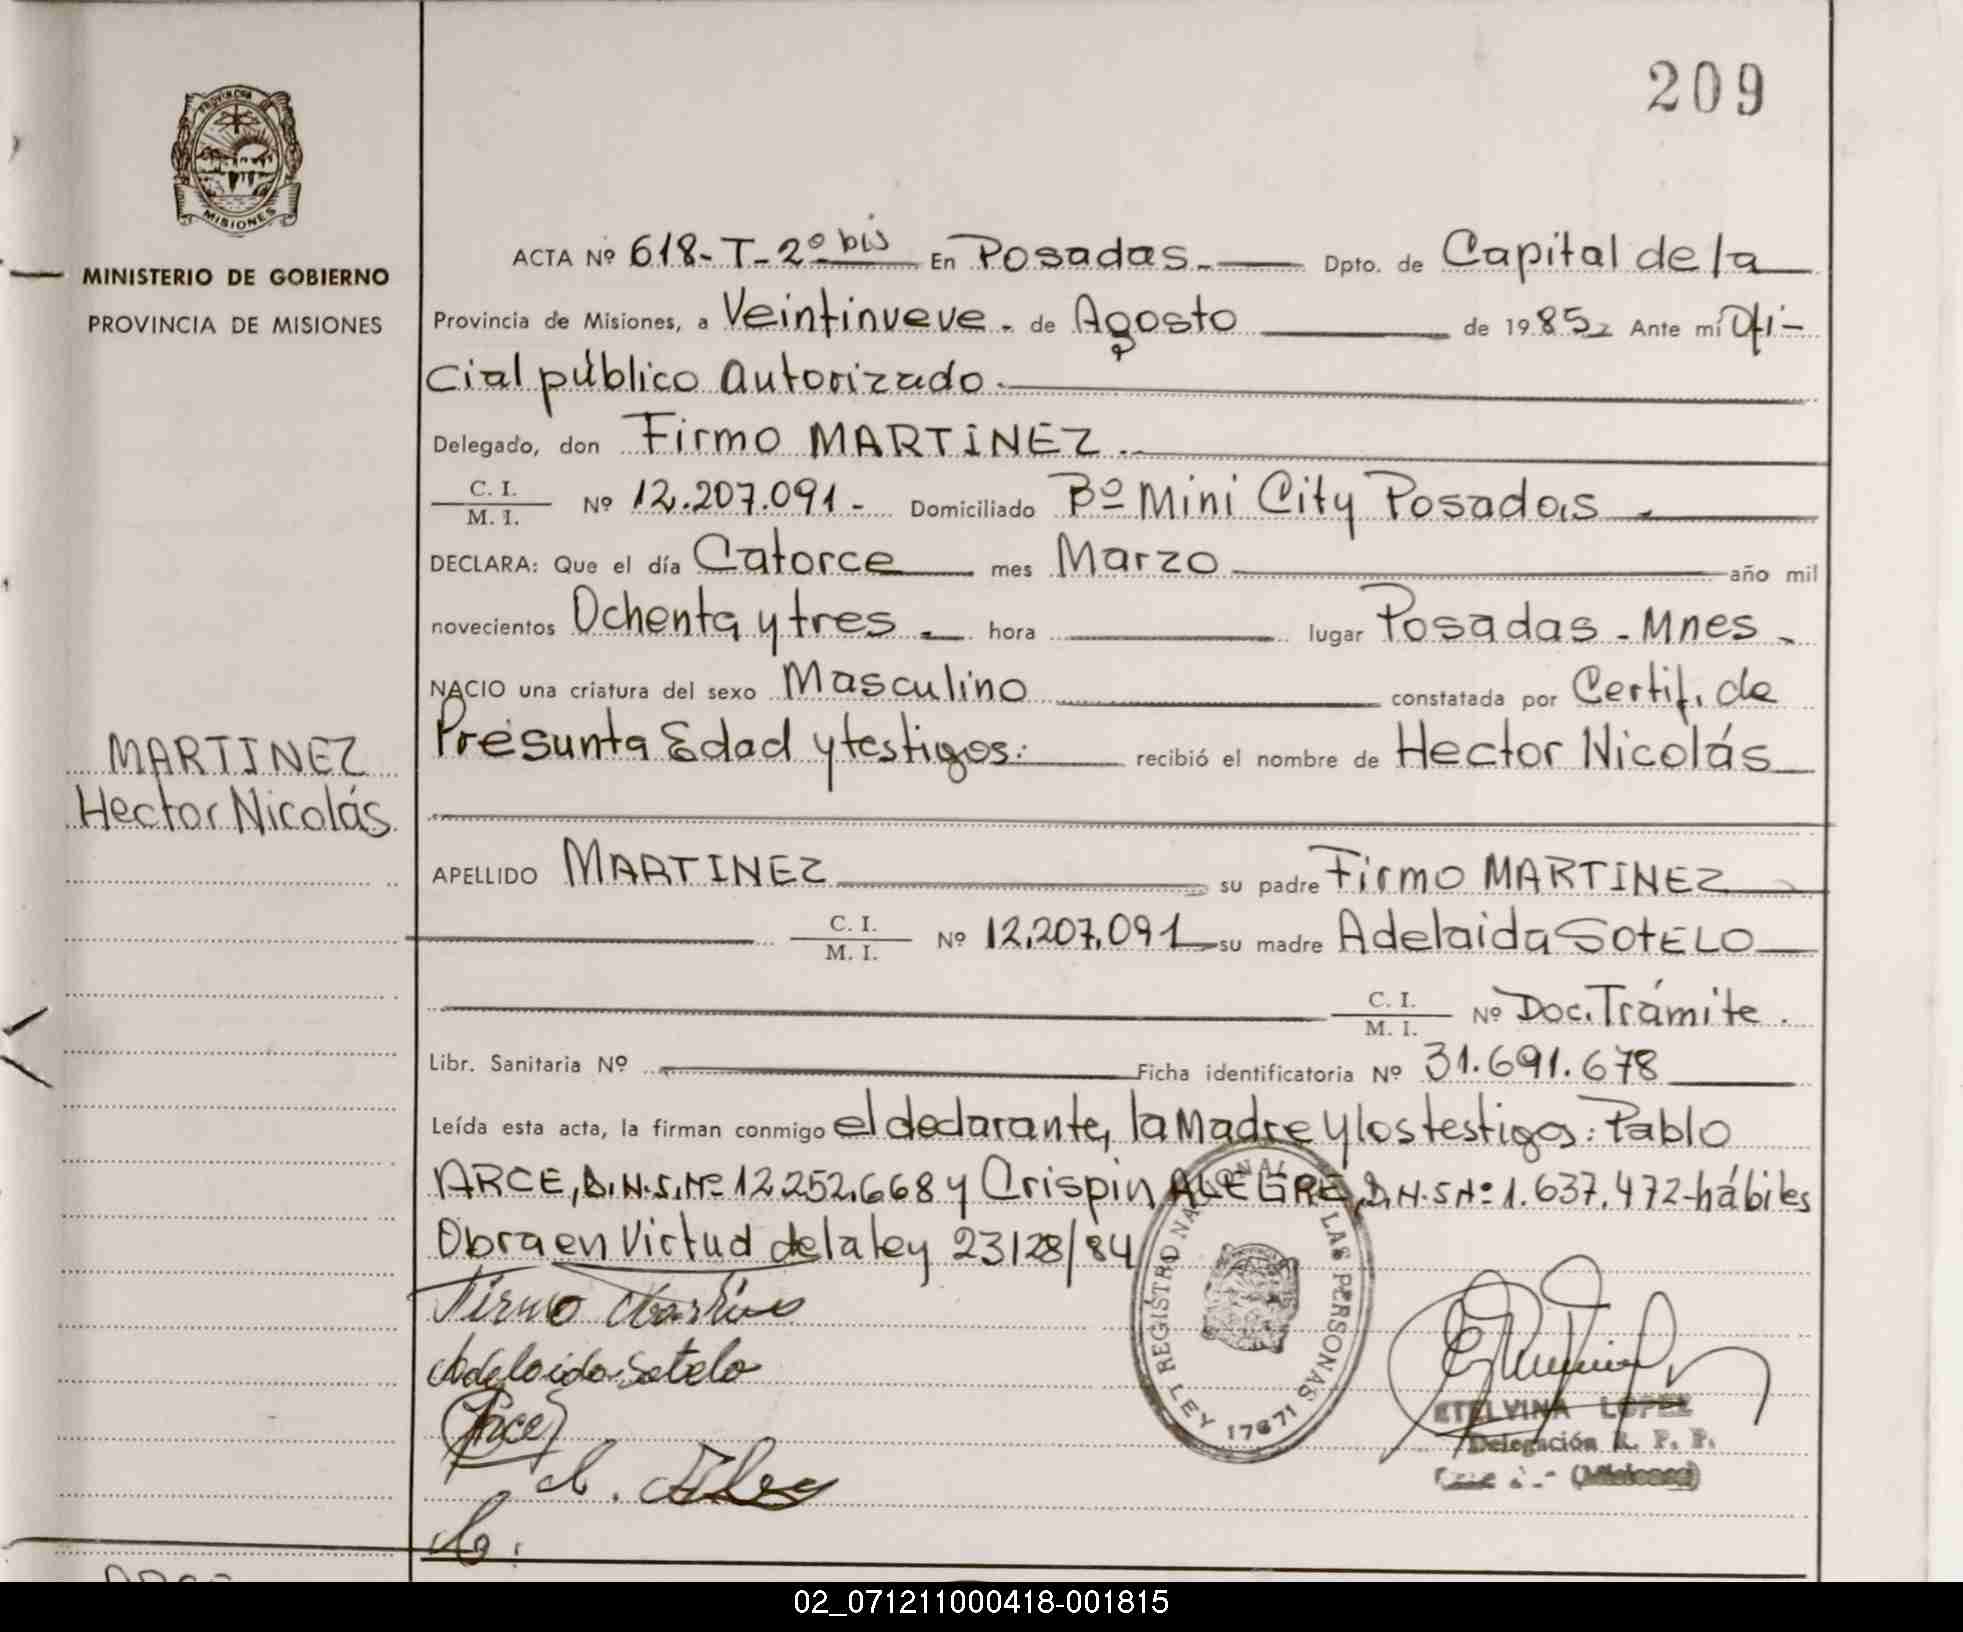 209
PROVINCIA
MISIONES
MINISTERIO DE GOBIERNO
PROVINCIA DE MISIONES
MARTINEZ
Hector Nicolás
ACTA Nº 618-T-2º bis En Posadas. Dpto. de Capital de la
Provincia de Misiones, a Veintinueve. de Agosto de 1985 Ante mí Ofi-
cial público Autorizado.
Delegado, don Firmo MARTINEZ.
C. I.
M. I. Nº 12.207.091.- Domiciliado Bº Mini City Posadas.
DECLARA: Que el día Catorce mes Marzo año mil
novecientos Ochenta y tres hora lugar Posadas - Mnes.
NACIO una criatura del sexo Masculino constatada por Certif. de
Presunta Edad y testigos. recibió el nombre de Hector Nicolás
APELLIDO MARTINEZ su padre Firmo MARTINEZ
C. I.
M. I. Nº 12.207.091 su madre Adelaida SOTELO
C. I.
M. I. Nº Doc. Trámite.
Libr. Sanitaria Nº Ficha identificatoria Nº 31.691.678
Leída esta acta, la firman conmigo el declarante, la Madre y los testigos: Pablo
ARCE, D.N.I. Nº 12.252.668 y Crispin ALEGRE, D.N.I Nº 1.637.472-hábiles
Obra en Virtud de la ley 23128/84
Firmo Martinez
Adelaida Sotelo
Arce
REGISTRO NACIONAL LAS PERSONAS
LEY 17671
ETELVINA LOPEZ
Delegación R. P. P.
(Misiones)
02_071211000418-001815